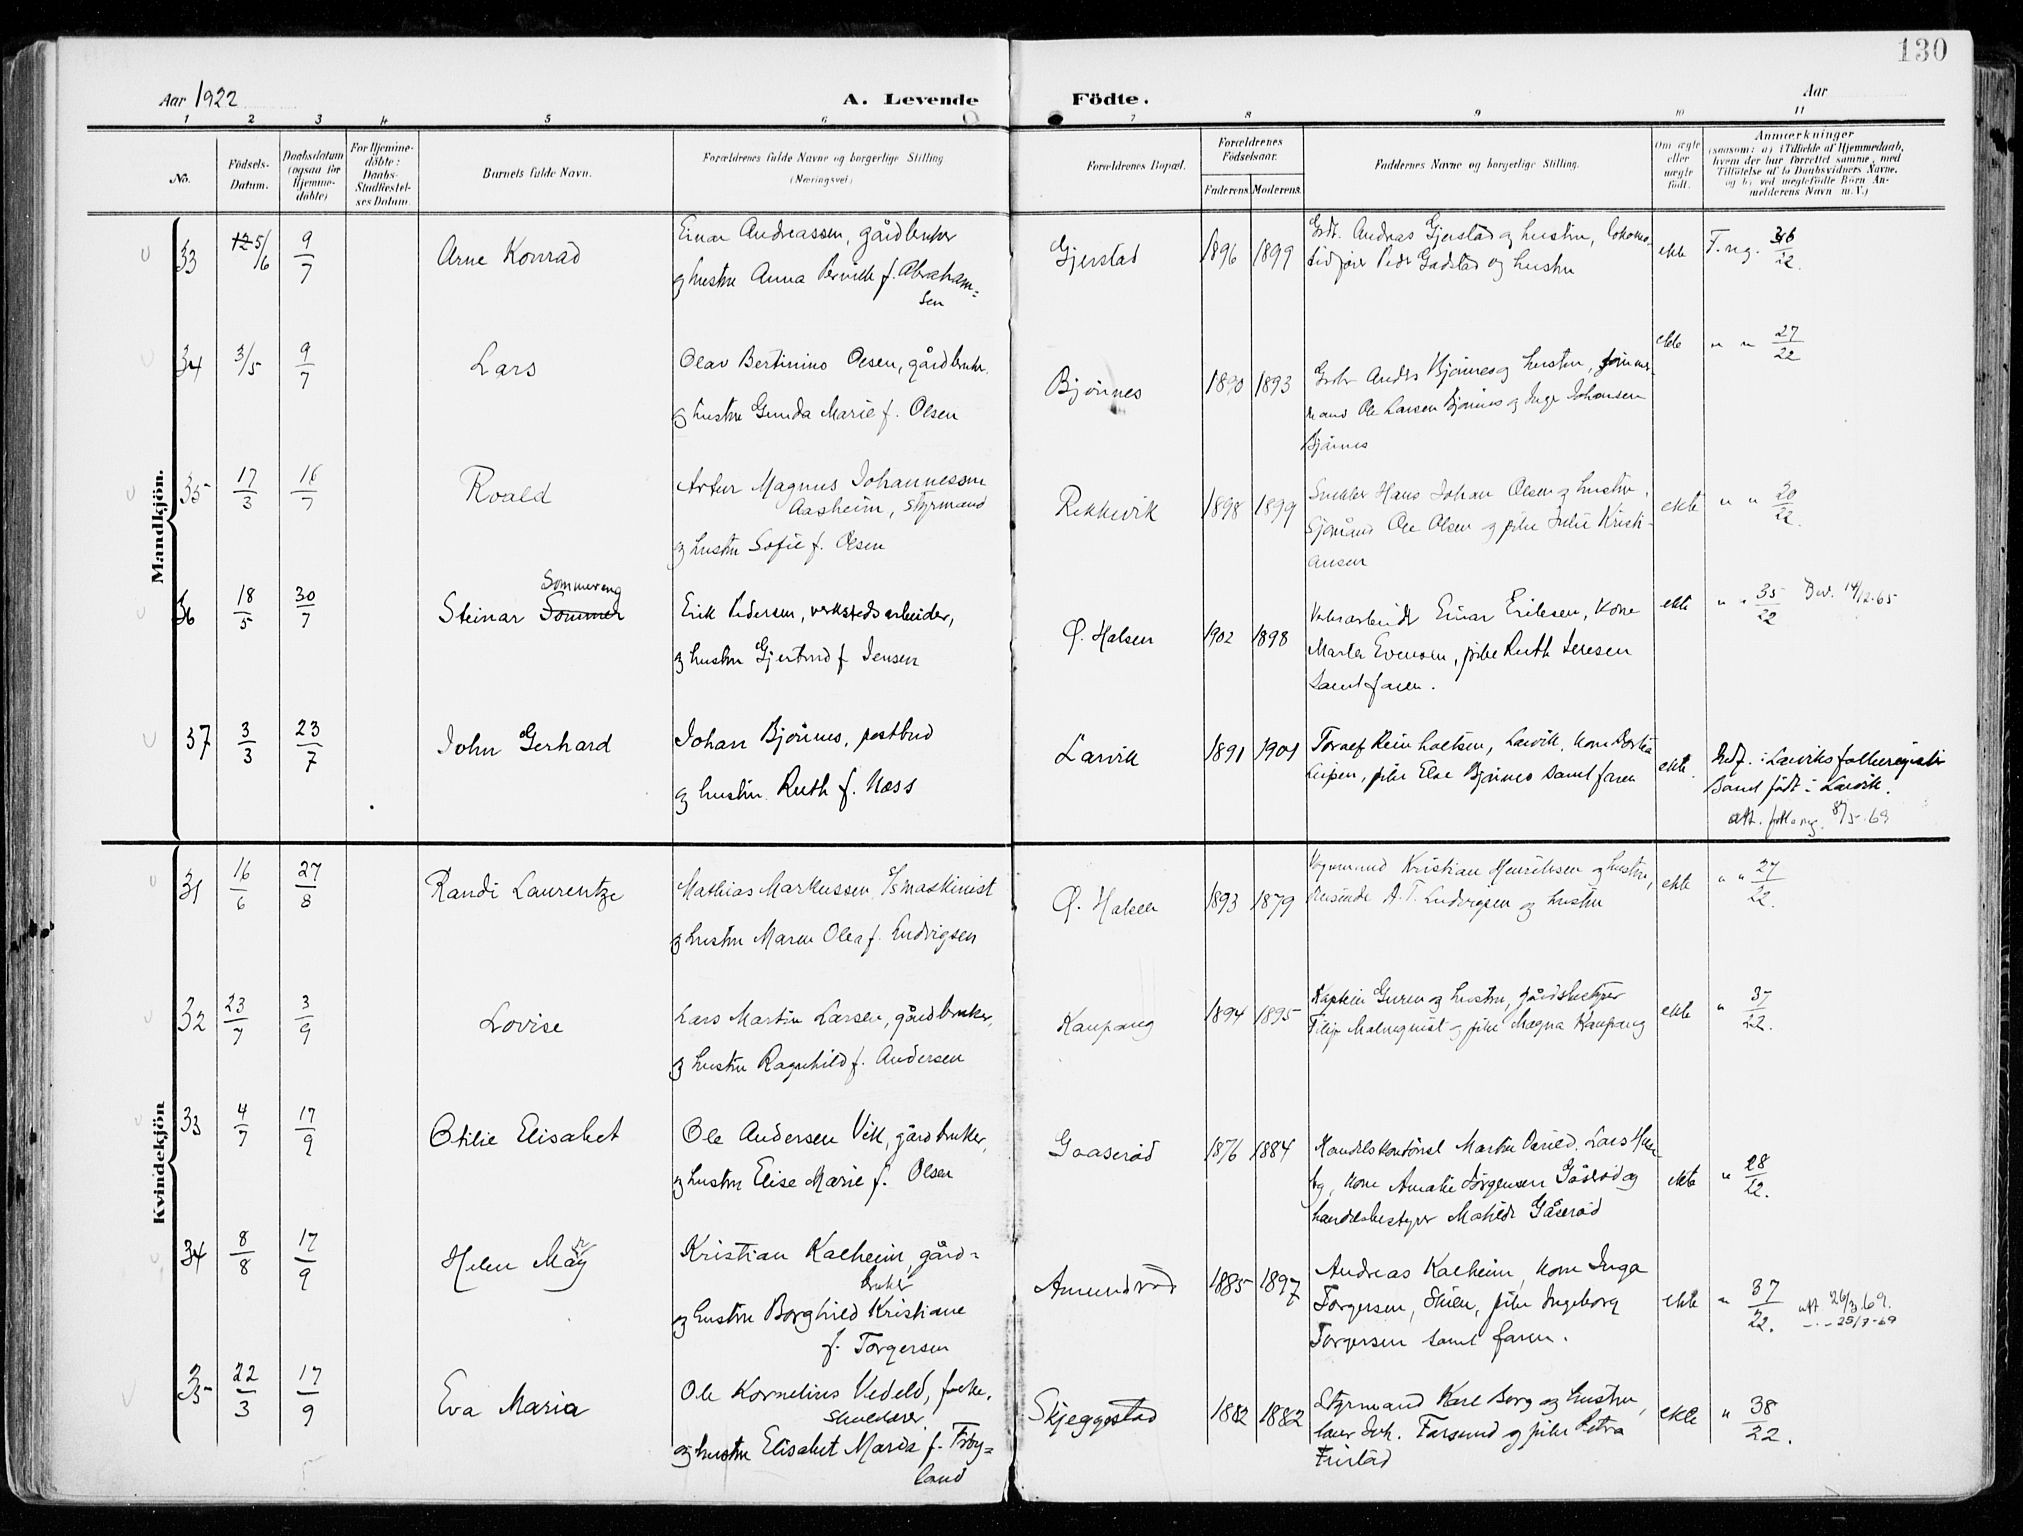 130
Aar 1922
A. Levende Födte.
Aar
1 2 3 4 5 6 7 8 9 10 11
No.
Födsels-
Datum.
Daabsdatum
(ogsaa for
Hjemme-
döbte)
For Hjemme-
döbte:
Daabs-
Stadfæstel-
ses Datum.
Barnets fulde Navn.
Forældrenes fulde Navne og borgerlige Stilling
(Næringsvei)
Forældrenes Bopæl.
Forældrenes
Födselsaar.
Faderens. Moderens.
Faddernes Navne og borgerlige Stilling.
Om ægte
eller
uægte
født.
Anmærkninger
(saasom: a) i Tilfælde af Hjemmedaab,
hvem der har forrettet samme, med
Tilföielse af to Daabsvidners Navne,
og b) ved uægtefödte Börn An-
melderens Navn m. V.)
Mandkjön.
33 5/6 9/7 Arne Konrad
Einar Andreassen, gårdbruker
og hustru Anna f. Abraham=
sen
Gjerstad 1896 1899
Grdt. Andreas Gjerstad og hustru, lokomo
tivfører Peder Gadstad og hustru
ekte F. reg. 36/22.
34 3/5 9/7 Lars
Olav Bertinius Olsen, gårdbruker.
og hustru Gunda Marie f. Olsen
Bjönnes 1890 1893
Grdbr Anders Bjönnes og hustru, tömmer-
mand Ole Larsen Bjönnes og Inga Johansen
Bjönnes
ekte " " 27/22
35 17/3 16/7 Roald
Artur Magnus Johannessen
Aasheim, styrmand
og hustru Sofie f. Olsen
Rekkevik 1898 1899
Snekker Hans Johan Olsen og hustru,
Sjömand Ole Olsen og pike Julie Kristi-
ansen
ekte " " 30/22.
36 18/5 30/7 Steinar Sommer
Sommereng
Erik Pedersen, verkstedsarbeider,
og hustru Gjertrud f. Jensen
Ø. Halsen 1902 1898
Einar Eriksen, kone
Marta Evensen, pike Ruth Jensen
samt faren.
ekte " " 35/22 Bev. 14/12-65
37 3/3 23/7 John Gerhard
Johan Bjönnes, postbud
og hustru Ruth f. Næss
Larvik 1891 1901
Toralf Reinholtsen, Larvik, kone
pike Else Bjönnes samt faren
ekte. Indf. i Larviks folkeregister
samt födt i Larvik.
att. folkereg. 8/5-69
Kvindekjön
31 16/6 27/8 Randi Laurentze
Mathias Markussen, maskinist
og hustru Maren Olea f. Ludvigsen
Ø. Halsen 1893 1879
Kristian Henriksen og hustru,
reisende A. T. Ludvigsen og hustru
ekte " " 27/22.
32 23/7 3/9 Lovise
Lars Martin Larsen, gårdbruker,
og hustru Ragnhild f. Andersen
Kaupang 1894 1895
Kaptein Guren og hustru, gårdsbestyrer
Filip Malmquist og pike Magna Kaupang
ekte " 37/22.
33 4/7 17/9 Otilie Elisabet
Ole Andersen Vik, gårdbruker,
og hustru Elise Marie f. Olsen
Gaaseröd 1876 1884
Handelskontorist Martin Lars
kone Amalie Jörgensen Gåseröd og
handelsbestyrer Matilde Gåseröd
ekte " 28/22.
34 8/8 17/9 Helen May
Kristian Kalheim, gård=
bruker
og hustru Borghild Kristiane
f. Torgersen
Amundröd 1885 1897
Andreas Kalheim, kone Inga
Torgersen, Skien, pike Ingeborg
Torgersen samt faren.
ekte " 37/22. att 26/3.69.
— - 25/7-69
35 22/3 17/9 Eva Maria
Ole Kornelius Vedeld, folke.
skolelærer
og hustru Elisabet Maria f. Fröy=
land
Skjeggestad 1882 1882
Styrmand Karl Borg og hustru,
lærer Joh. Farsund og pike Petra
Fristad
ekte " 38/22.